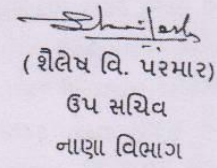 ( શૈલેષ વિ. પરમાર)
ઉપ સચિવ
નાણા વિભાગ